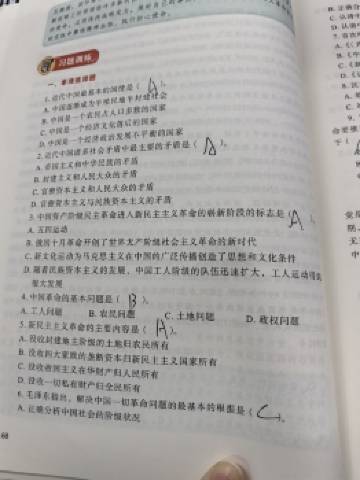 习题演练
一、单项选择题
1. 近代中国最基本的国情是( A )。
A. 中国逐渐成为半殖民地半封建社会
B. 中国是一个农民占人口多数的国家
C. 中国是一个经济文化落后的国家
D. 中国是一个经济政治发展不平衡的国家
2. 近代中国诸多社会矛盾中最主要的矛盾是( A )。
A. 帝国主义和中华民族的矛盾
B. 封建主义和人民大众的矛盾
C. 官僚资本主义和人民大众的矛盾
D. 官僚资本主义与民族资本主义的矛盾
3. 中国资产阶级民主革命进入新民主主义革命的崭新阶段的标志是( A )。
A. 五四运动
B. 俄国十月革命开创了世界无产阶级社会主义革命的新时代
C. 新文化运动为马克思主义在中国的广泛传播创造了思想和文化条件
D. 随着民族资本主义的发展，中国工人阶级的队伍迅速扩大，工人运动得到
很大发展
4. 中国革命的基本问题是( B )。
A. 工人问题 B. 农民问题 C. 土地问题 D. 政权问题
5. 新民主主义革命的主要内容是( A )。
A. 没收封建地主阶级的土地归农民所有
B. 没收四大家族的垄断资本归新民主主义国家所有
C. 没收帝国主义在华财产归人民所有
D. 没收一切私有财产归全民所有
6. 毛泽东指出，解决中国一切革命问题的最基本的根据是( C )。
A. 正确分析中国社会的阶级状况
68